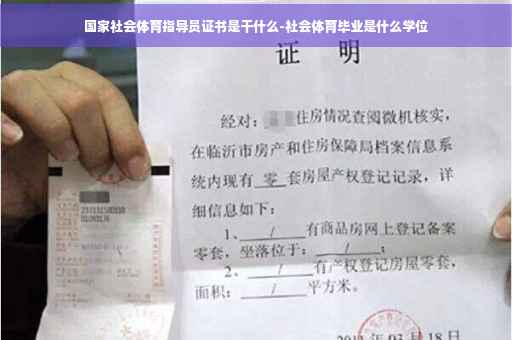 国家社会体育指导员证书是干什么-社会体育毕业是什么学位
证 明
经对：住房情况查阅微机核实，
在临沂市房产和住房保障局档案信息系
统内现有 零 套房屋产权登记记录，详
细信息如下：
1、 / 有商品房网上登记备案
零套，坐落位于： / ；
2、 / 有产权登记房屋零套，
面积： / 平方米。
03月18日